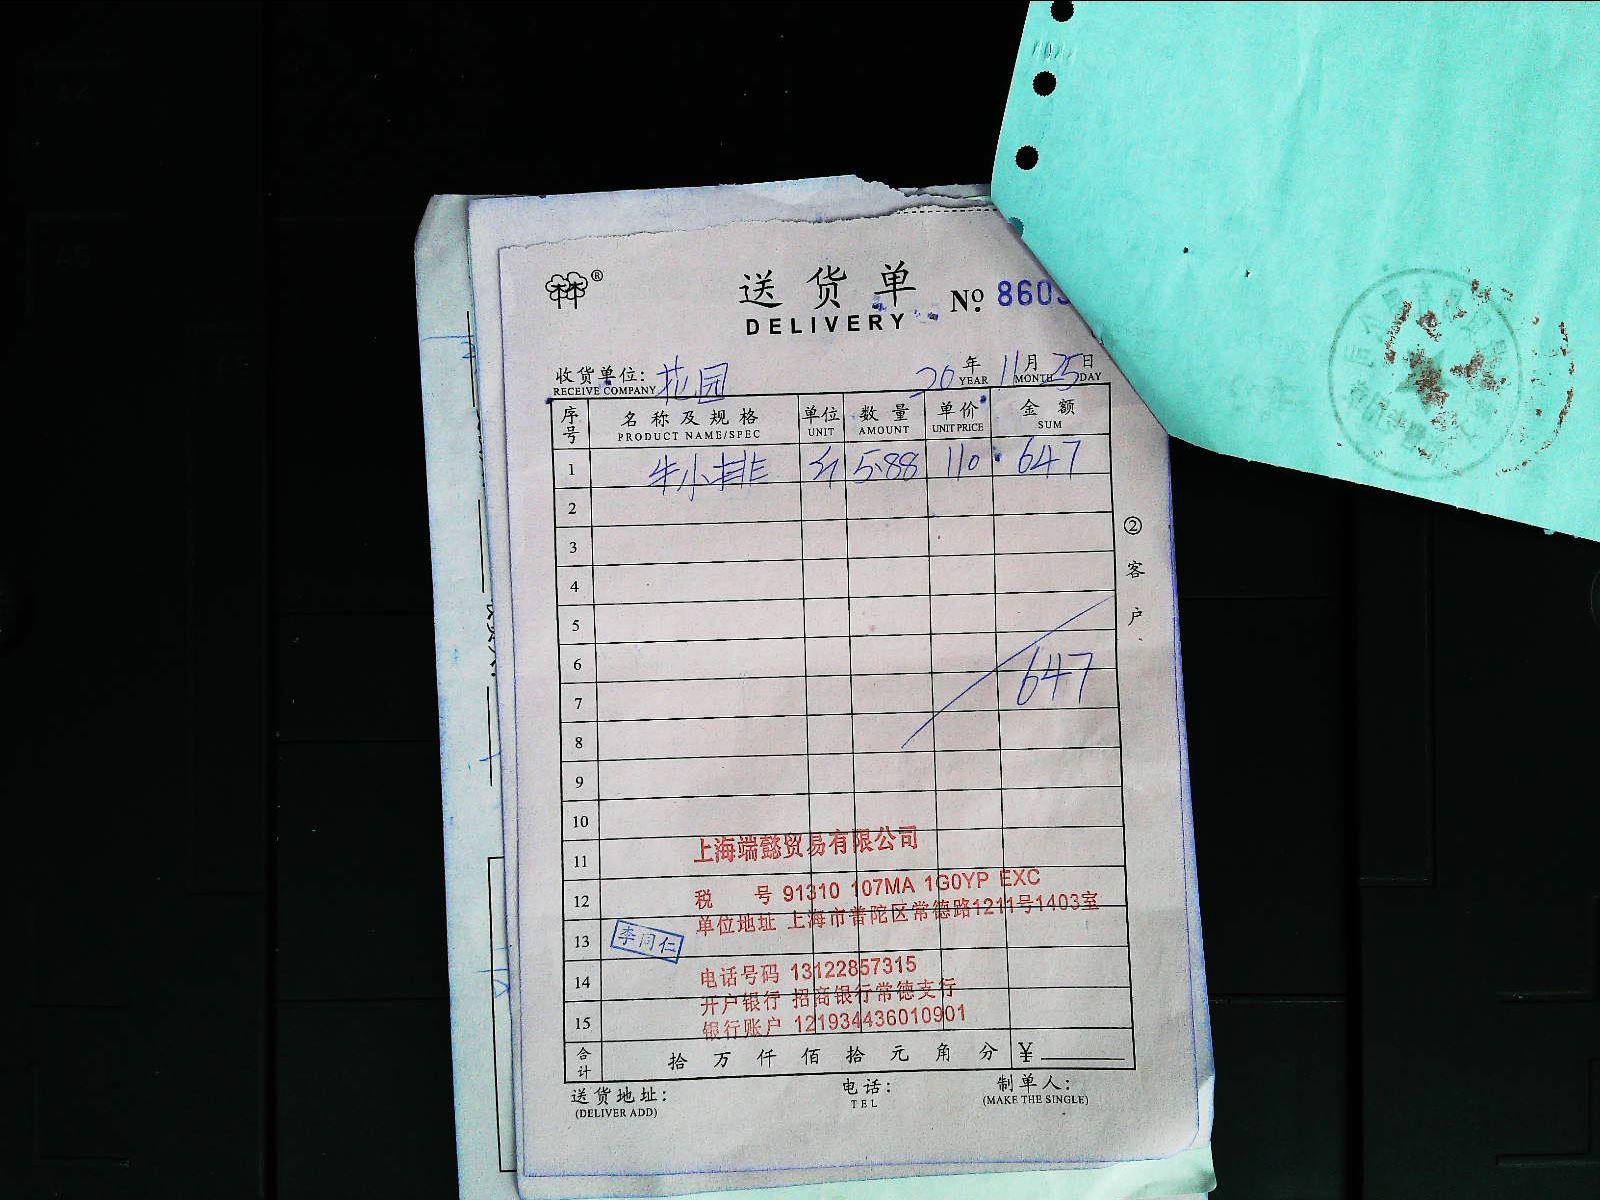 送货单
DELIVERY
№ 8603
收货单位: 花园 20年11月25日
RECEIVE COMPANY YEAR MONTH DAY
序号 名称及规格 单位 数量 单价 金额
PRODUCT NAME/SPEC UNIT AMOUNT UNIT PRICE SUM
1 牛小排 斤 5.88 110 647
2
3
4
5
6
647
7
8
9
10
11 上海端懿贸易有限公司
12 税 号 91310 107MA 1G0YP EXC
单位地址 上海市普陀区常德路1211号1403室
13 李同仁
14 电话号码 13122857315
开户银行 招商银行常德支行
15 银行账户 121934436010901
合计 拾 万 仟 佰 拾 元 角 分 ¥
送货地址: 电话: 制单人:
(DELIVER ADD) TEL (MAKE THE SINGLE)
②客户